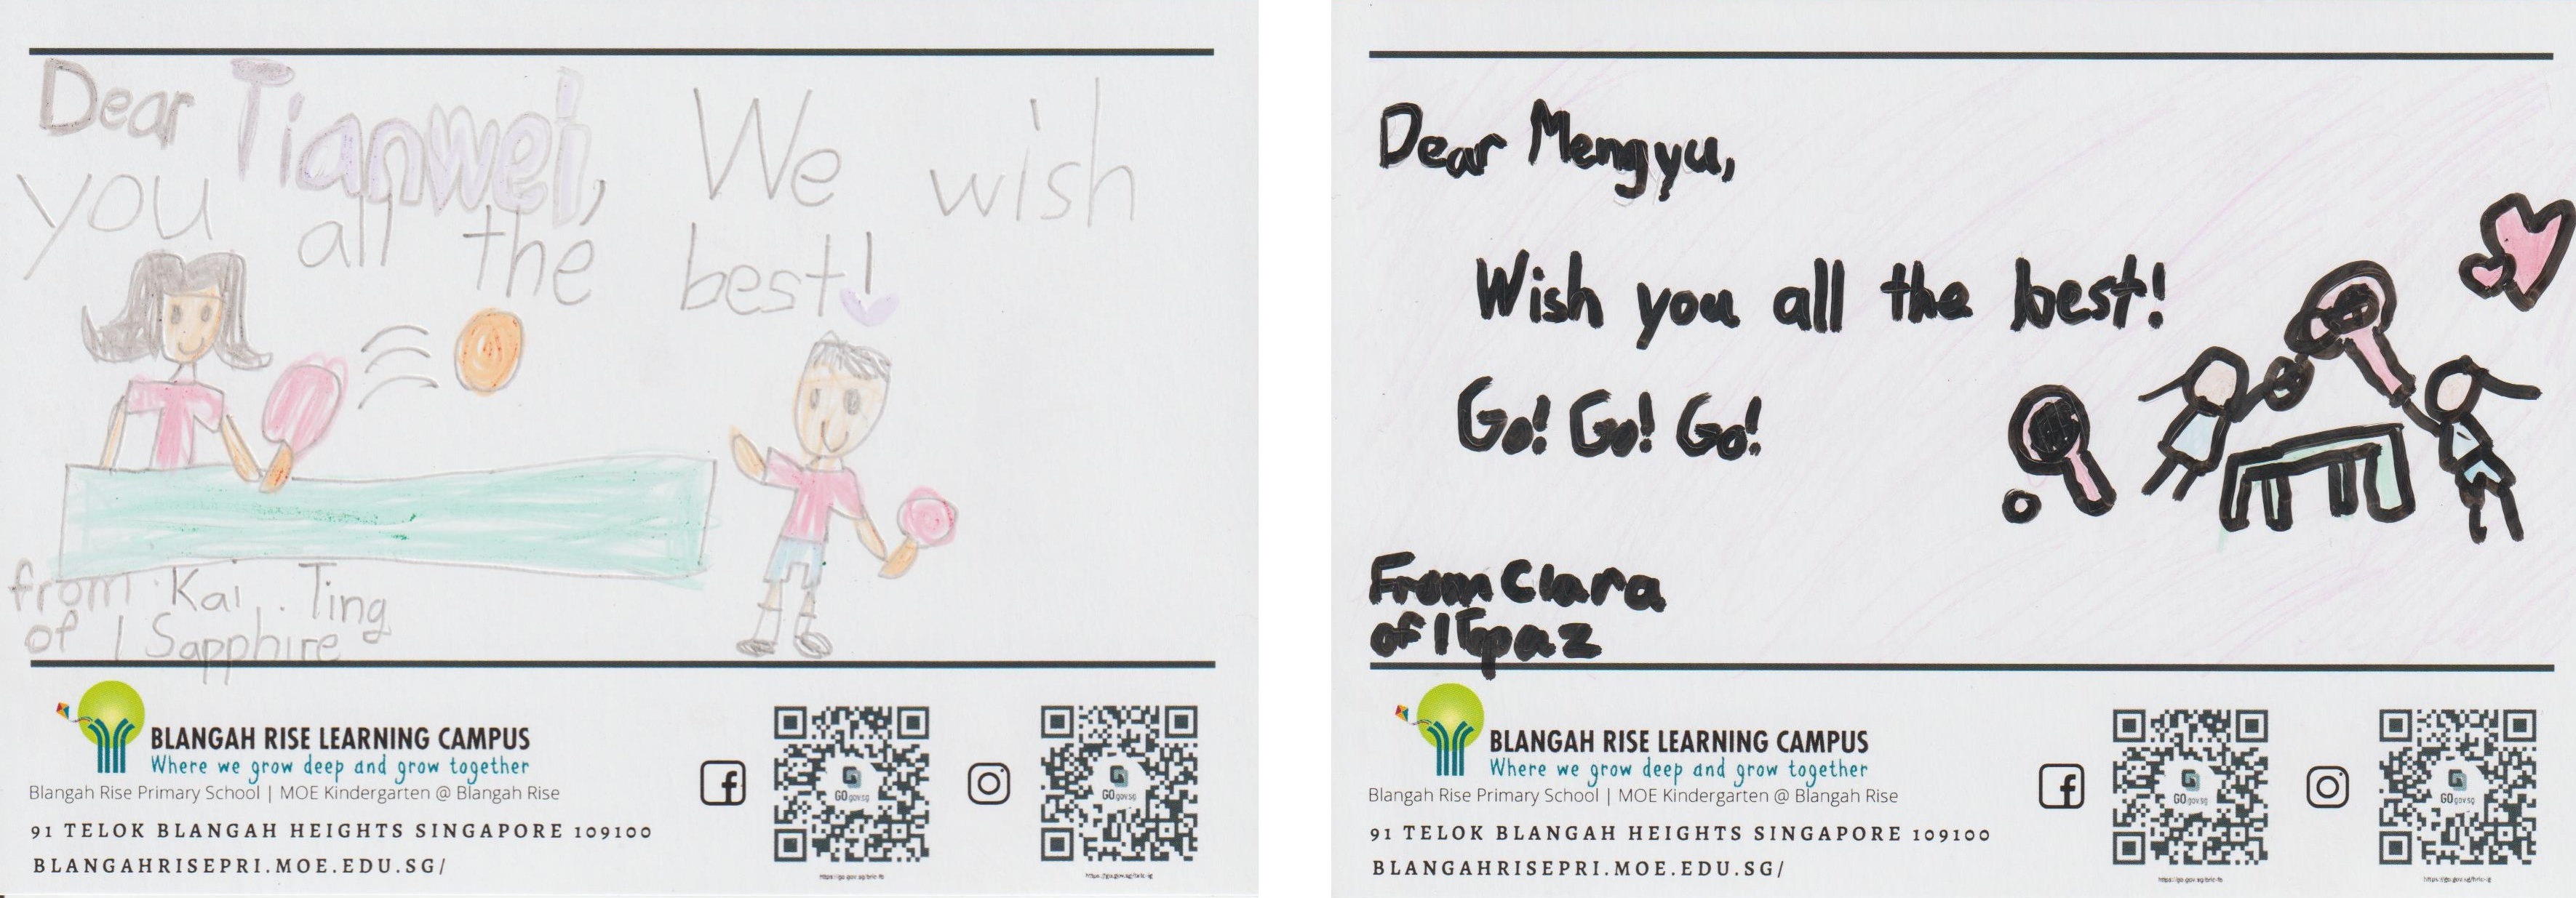 Dear Tianwei, We wish
you all the best!
from Kai Ting
of 1 Sapphire
BLANGAH RISE LEARNING CAMPUS
Where we grow deep and grow together
Blangah Rise Primary School | MOE Kindergarten @ Blangah Rise
91 TELOK BLANGAH HEIGHTS SINGAPORE 109100
BLANGAHRISEPRI.MOE.EDU.SG/
GO.gov.sg
https://go.gov.sg/brlc-fb
GO.gov.sg
https://go.gov.sg/brlc-ig
Dear Mengyu,
Wish you all the best!
Go! Go! Go!
From Clara
of 1 Topaz
BLANGAH RISE LEARNING CAMPUS
Where we grow deep and grow together
Blangah Rise Primary School | MOE Kindergarten @ Blangah Rise
91 TELOK BLANGAH HEIGHTS SINGAPORE 109100
BLANGAHRISEPRI.MOE.EDU.SG/
GO.gov.sg
https://go.gov.sg/brlc-fb
GO.gov.sg
https://go.gov.sg/brlc-ig